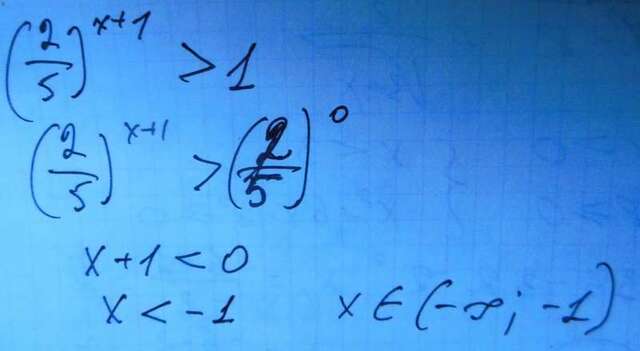 (2/5)^(x+1) > 1
(2/5)^(x+1) > (2/5)^0
x + 1 < 0
x < -1 x ∈ (-∞; -1)